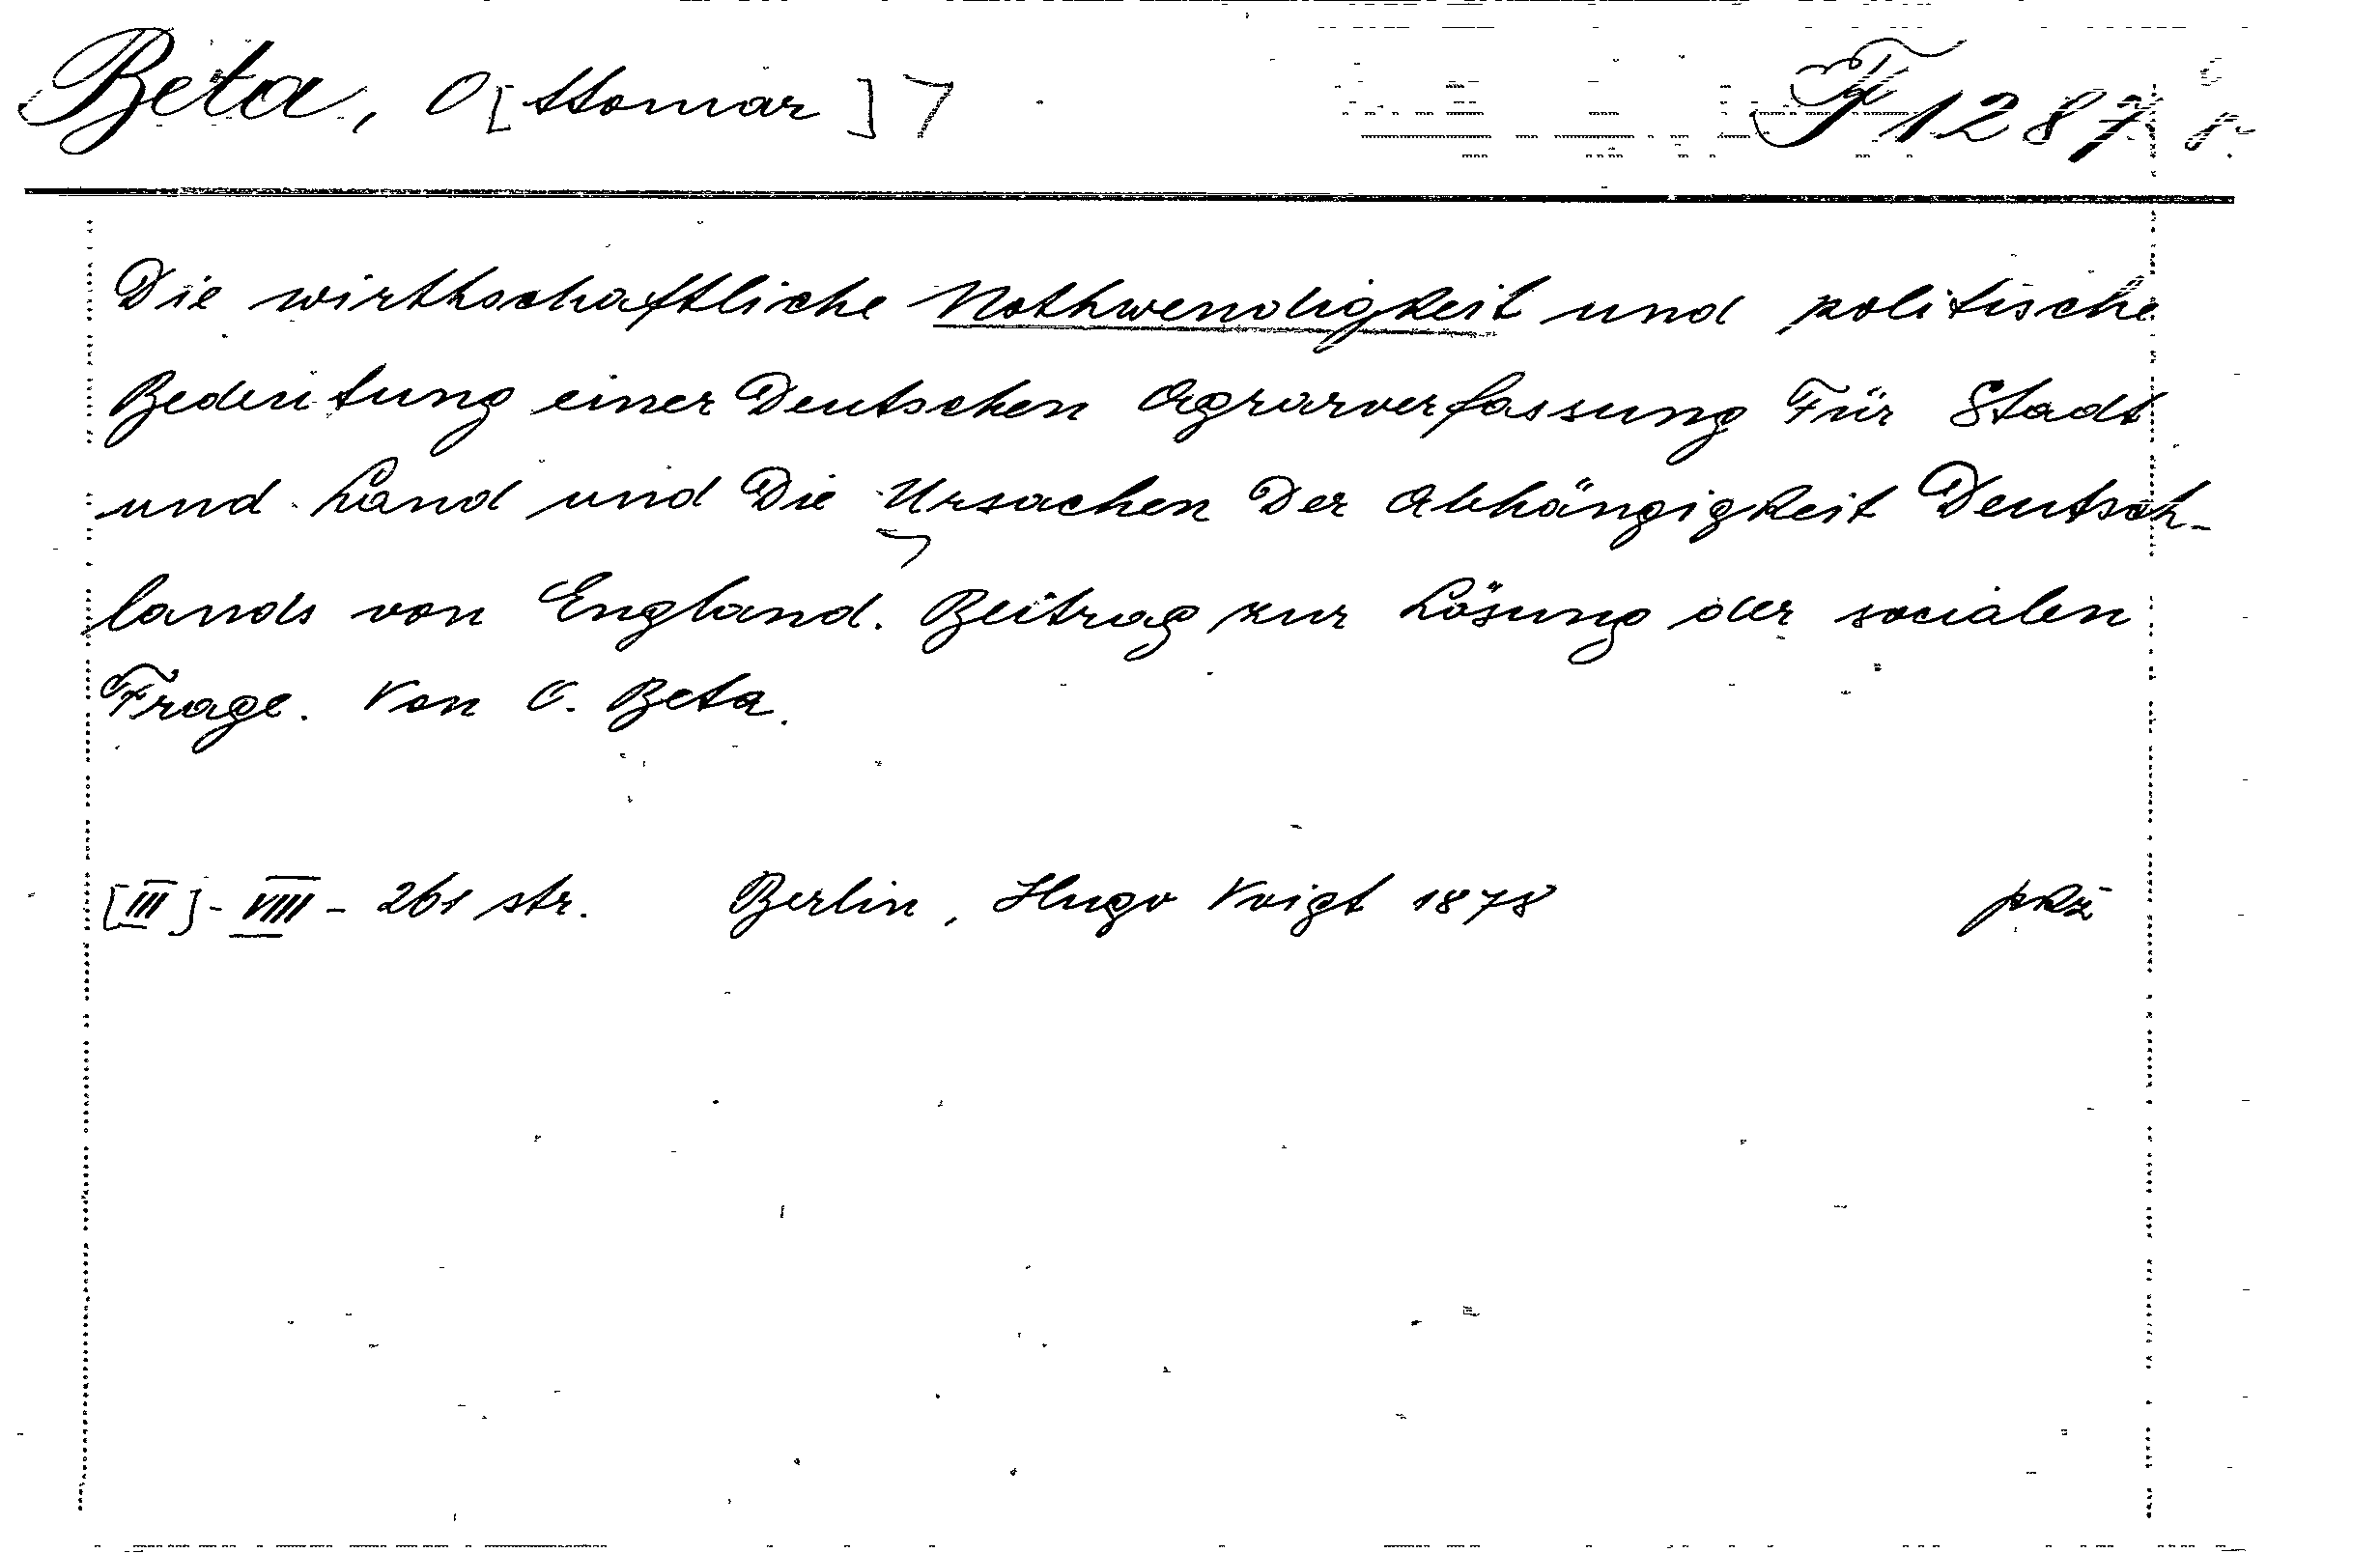 Beta, O[ttomar] F 1287
Die wirthschaftliche Nothwendigkeit und politische
Bedeutung einer Deutschen Agrarverfassung Für Stadt
und Land und Die Ursachen Der Abhängigkeit Deutsch-
lands von England. Beitrag zur Lösung der socialen
Frage. Von O. Beta.
[III]-VIII-261 str. Berlin, Hugo Voigt 1878